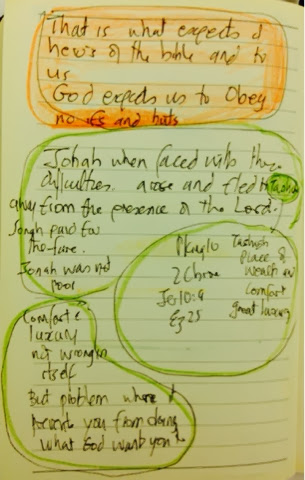 That is what expects of
hero's of the bible and to
us
God expects us to Obey
no ifs and buts
Jonah when faced with the
difficulties. arose and fled to Tarshish
away from the presence of the Lord.
Jonah paid for
the fare.
Jonah was not
poor
1 Kng 10
2 Chron
Jer 10:9
Ez 25
Tarshish
place of
wealth and
comfort
great luxury
Comfort &
luxury
not wrong in
itself
But problem where it
prevents you from doing
what God wants you